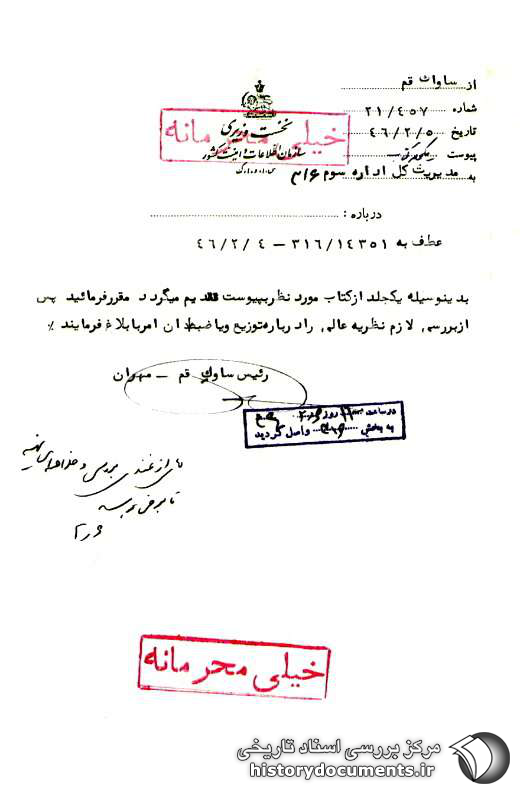 از ساواك قم
شماره ۲۱/۴۵۷
تاریخ ۴۶/۲/۵
پیوست
به مدیریت کل اداره سوم ۳۱۶
نخست وزیری
سازمان اطلاعات و امنیت کشور
س.ا.و.ا.ک
خیلی محرمانه
درباره :
عطف به ۳۱۶/۱۴۳۵۱ – ۴۶/۲/۴
بدینوسیله یکجلد از کتاب مورد نظر بپیوست تقدیم میگردد مقررفرمائید پس
ازبررسی لازم نظریه عالی رادرباره توزیع ویاضبط ان امربابلاغ فرمایند ٪
رئیس ساواك قم – مهران
در ساعت روز
به بخش واصل گردید
بررسی و
تا بعرض برسد
خیلی محرمانه
مرکز بررسی اسناد تاریخی
historydocuments.ir